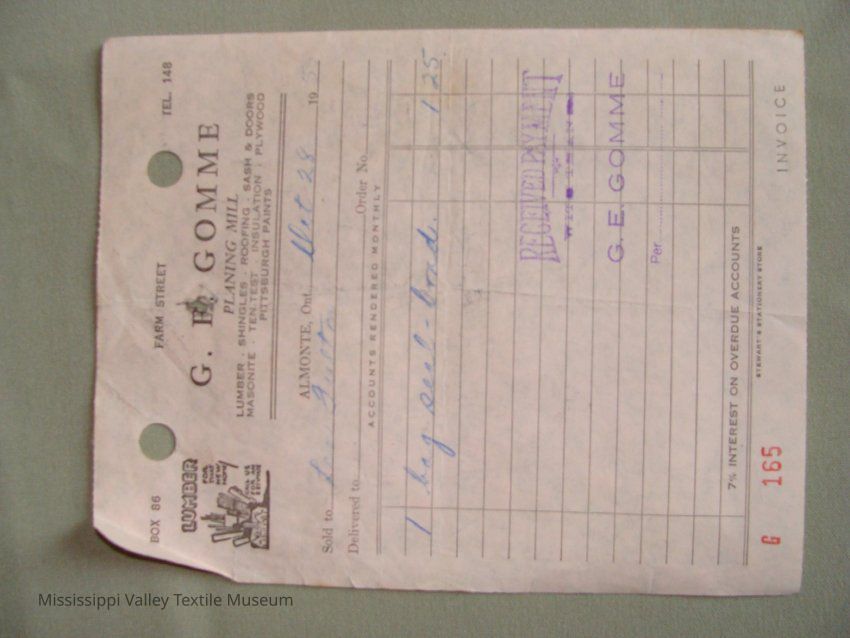 BOX 86 FARM STREET TEL. 148
LUMBER
FOR
THAT
NEW
HOME
CALL US
FOR AN
ESTIMATE
G. E. GOMME
PLANING MILL
LUMBER · SHINGLES · ROOFING · SASH & DOORS
MASONITE · TEN-TEST · INSULATION · PLYWOOD
PITTSBURGH PAINTS
ALMONTE, Ont., Oct 28 195
Sold to
Delivered to Order No.
ACCOUNTS RENDERED MONTHLY
1 bag seal-bond. 1 25
RECEIVED PAYMENT
WITH THANKS
G. E. GOMME
Per
7% INTEREST ON OVERDUE ACCOUNTS
STEWART'S STATIONERY STORE
G 165 INVOICE
Mississippi Valley Textile Museum